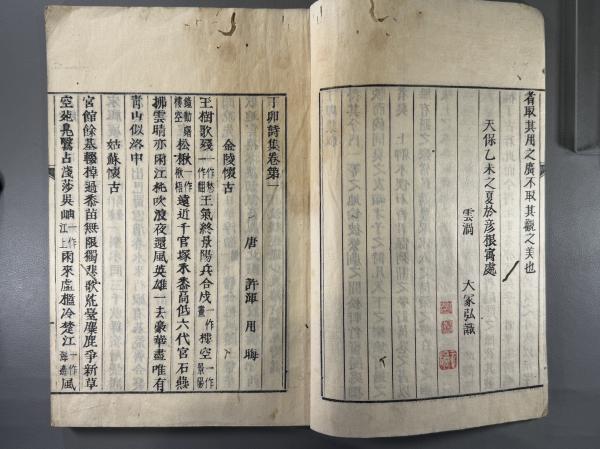 者取其用之廣不取其觀之美也
天保乙未之夏於彦根寓處
雲濤　大冢弘識
丁卯詩集卷第一
唐　許渾　用晦
金陵懷古
玉樹歌殘一作愁一作翻王氣終景陽兵合戍一作畫樓空一作景陽
鐘動曙樓空松楸一作楸梧遠近千官塚禾黍高低六代宮石燕
拂雲晴亦雨江㹠吹浪夜還風英雄一去豪華盡唯有
青山似洛中
姑蘇懷古
宮館餘基輟棹過黍苗無限獨悲歌荒臺麋鹿爭新草
空苑鳧鷖占淺莎吳岫一作江上雨來虛檻冷楚江一作海邊風